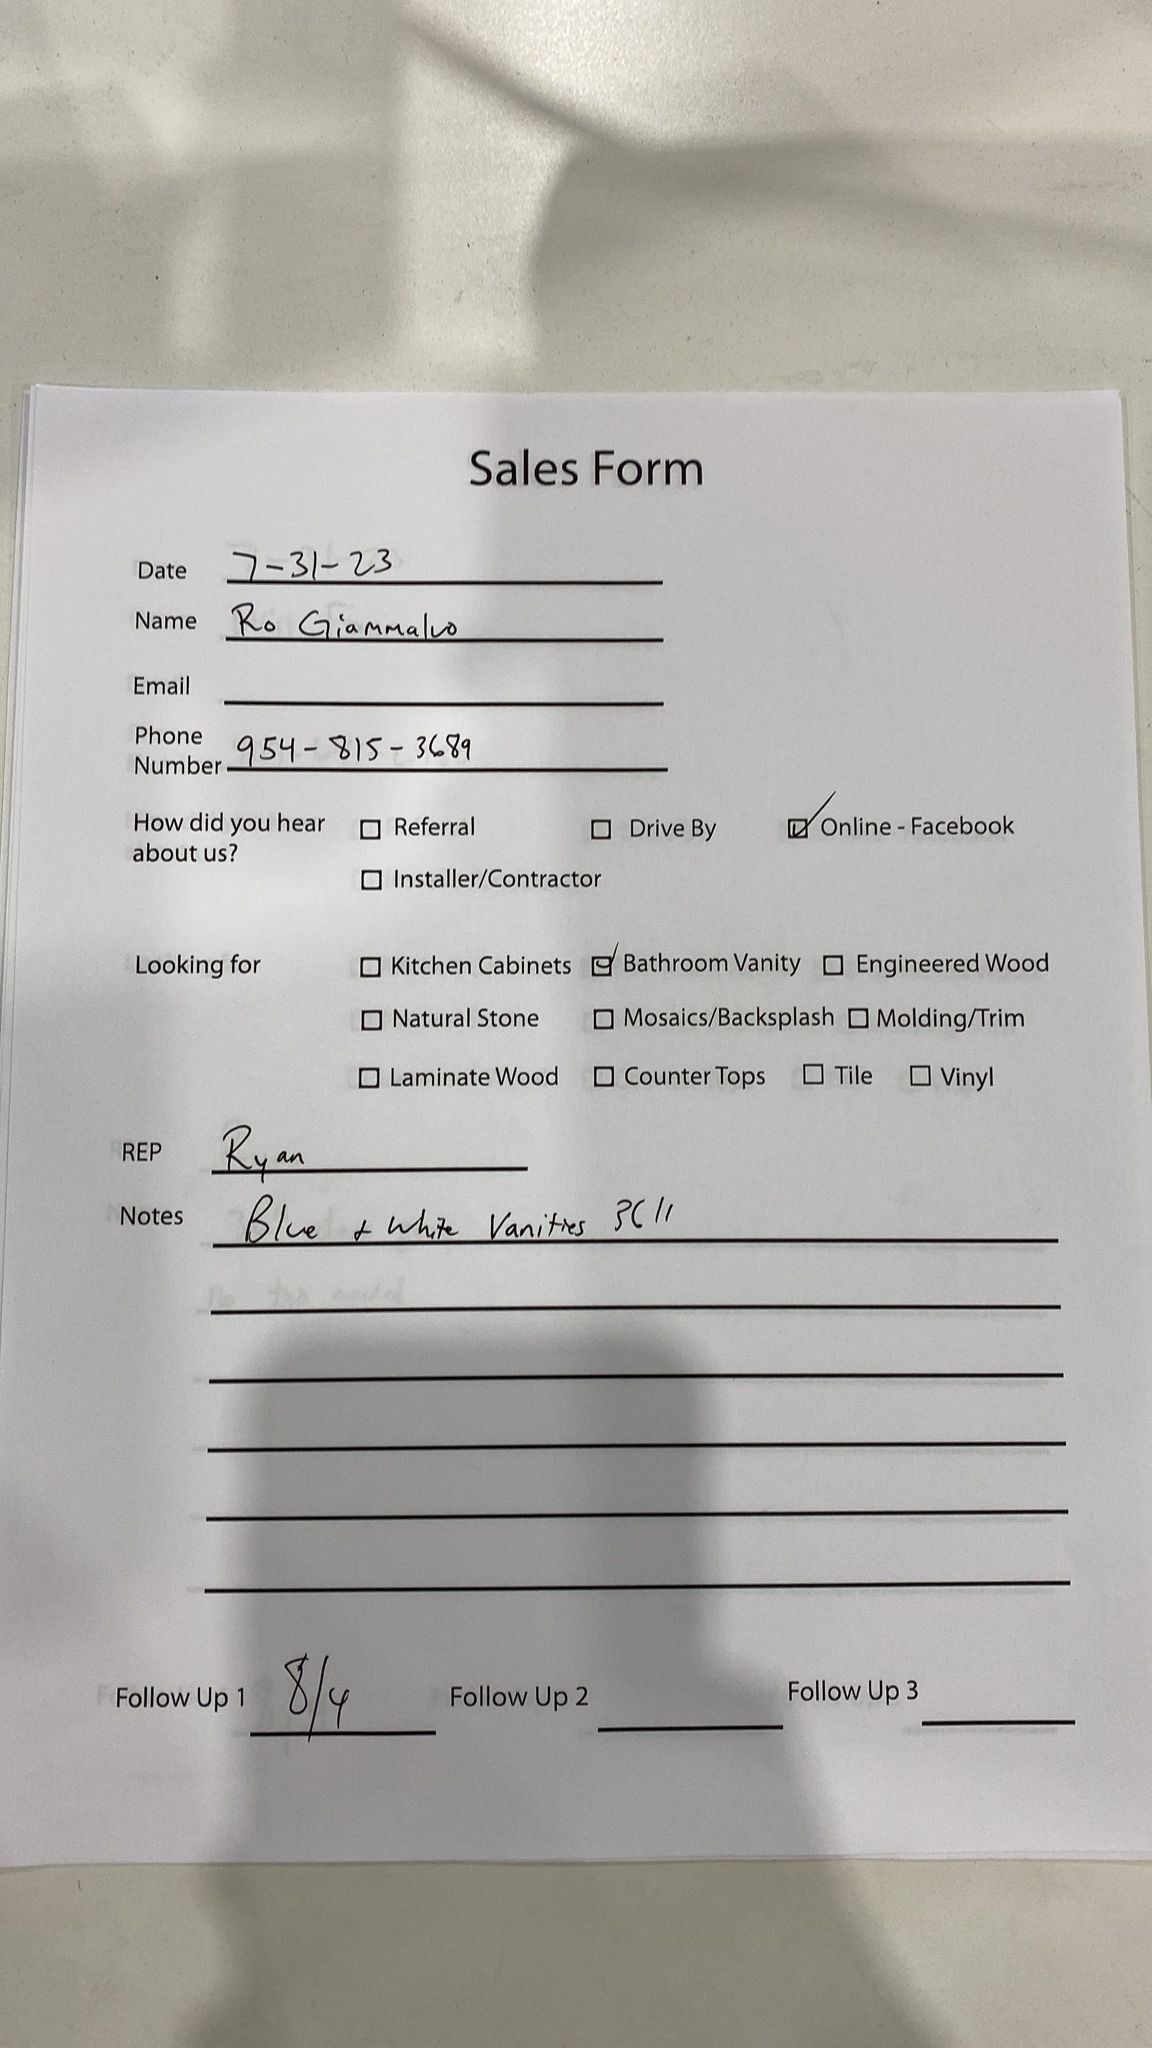 Sales Form
Date 7-31-23
Name Ro Giammalvo
Email
Phone
Number 954-815-3689
How did you hear ☐ Referral ☐ Drive By ☑ Online - Facebook
about us?
☐ Installer/Contractor
Looking for ☐ Kitchen Cabinets ☑ Bathroom Vanity ☐ Engineered Wood
☐ Natural Stone ☐ Mosaics/Backsplash ☐ Molding/Trim
☐ Laminate Wood ☐ Counter Tops ☐ Tile ☐ Vinyl
REP Ryan
Notes Blue + White Vanities 36"
Follow Up 1 8/4 Follow Up 2 Follow Up 3